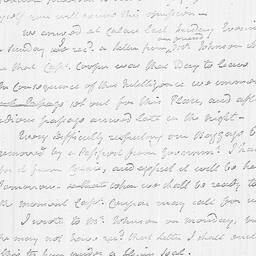 my self you will excuse this omission —
we arrived at Calais last Friday Evening
Sunday we rec.d a letter from Mr. Johnson
that Cap.t Cooper was that Day to leave
In consequence of this Intelligence we
Passage set out for this Place, and aft
tedious passage arrived late in the Night.
Every difficulty respecting our Baggage
removed by a Passport from Governm.t I ha
from Paris, and expect it will be he
Tomorrow. when we shall be ready to
the moment Cap.t Cooper may call for u
I wrote to Mr. Johnson on Monday, b
he may not have rec.d that letter I shall
this to him under a flying seal.